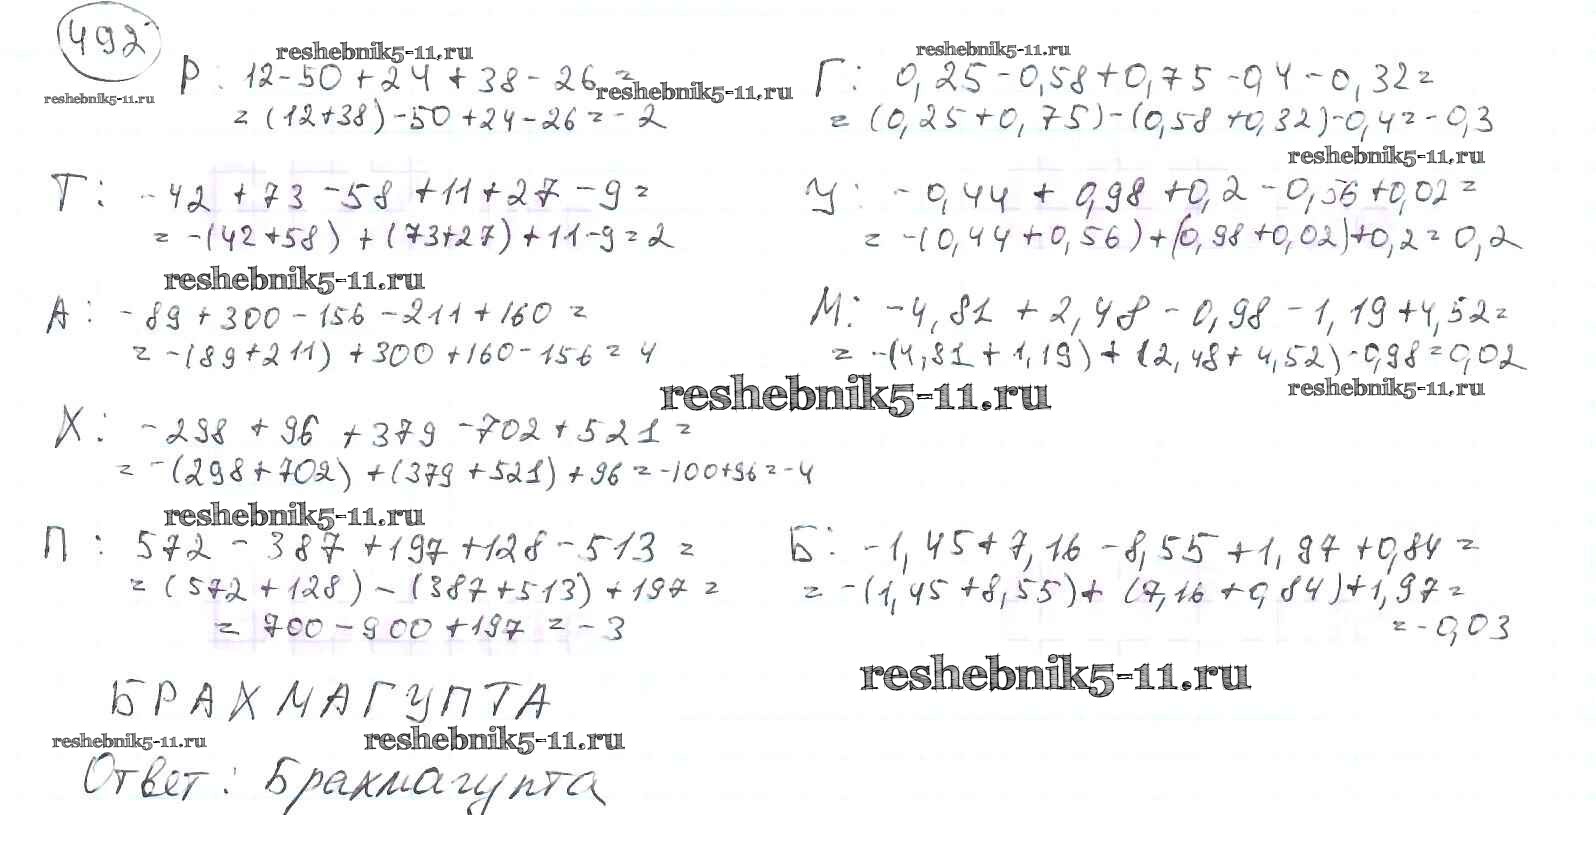 492
reshebnik5-11.ru
reshebnik5-11.ru
Р: 12-50+24+38-26=
reshebnik5-11.ru
=(12+38)-50+24-26=-2
reshebnik5-11.ru
Г: 0,25-0,58+0,75-0,4-0,32=
=(0,25+0,75)-(0,58+0,32)-0,4=-0,3
reshebnik5-11.ru
Т: -42+73-58+11+27-9=
=-(42+58)+(73+27)+11-9=2
reshebnik5-11.ru
У: -0,44+0,98+0,2-0,56+0,02=
=-(0,44+0,56)+(0,98+0,02)+0,2=0,2
А: -89+300-156-211+160=
=-(89+211)+300+160-156=4
М: -4,81+2,48-0,98-1,19+4,52=
=-(4,81+1,19)+(2,48+4,52)-0,98=0,02
reshebnik5-11.ru
reshebnik5-11.ru
Х: -298+96+379-702+521=
=-(298+702)+(379+521)+96=-100+96=-4
reshebnik5-11.ru
П: 572-387+197+128-513=
=(572+128)-(387+513)+197=
=700-900+197=-3
Б: -1,45+7,16-8,55+1,97+0,84=
=-(1,45+8,55)+(7,16+0,84)+1,97=
=-0,03
reshebnik5-11.ru
БРАХМАГУПТА
reshebnik5-11.ru
reshebnik5-11.ru
Ответ: Брахмагупта